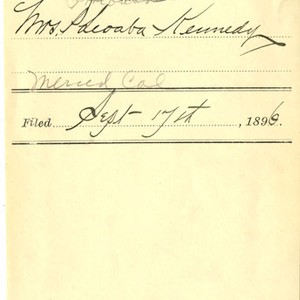 Mrs. Kennedy
Merced Cal
Filed Sept 17th, 1896.